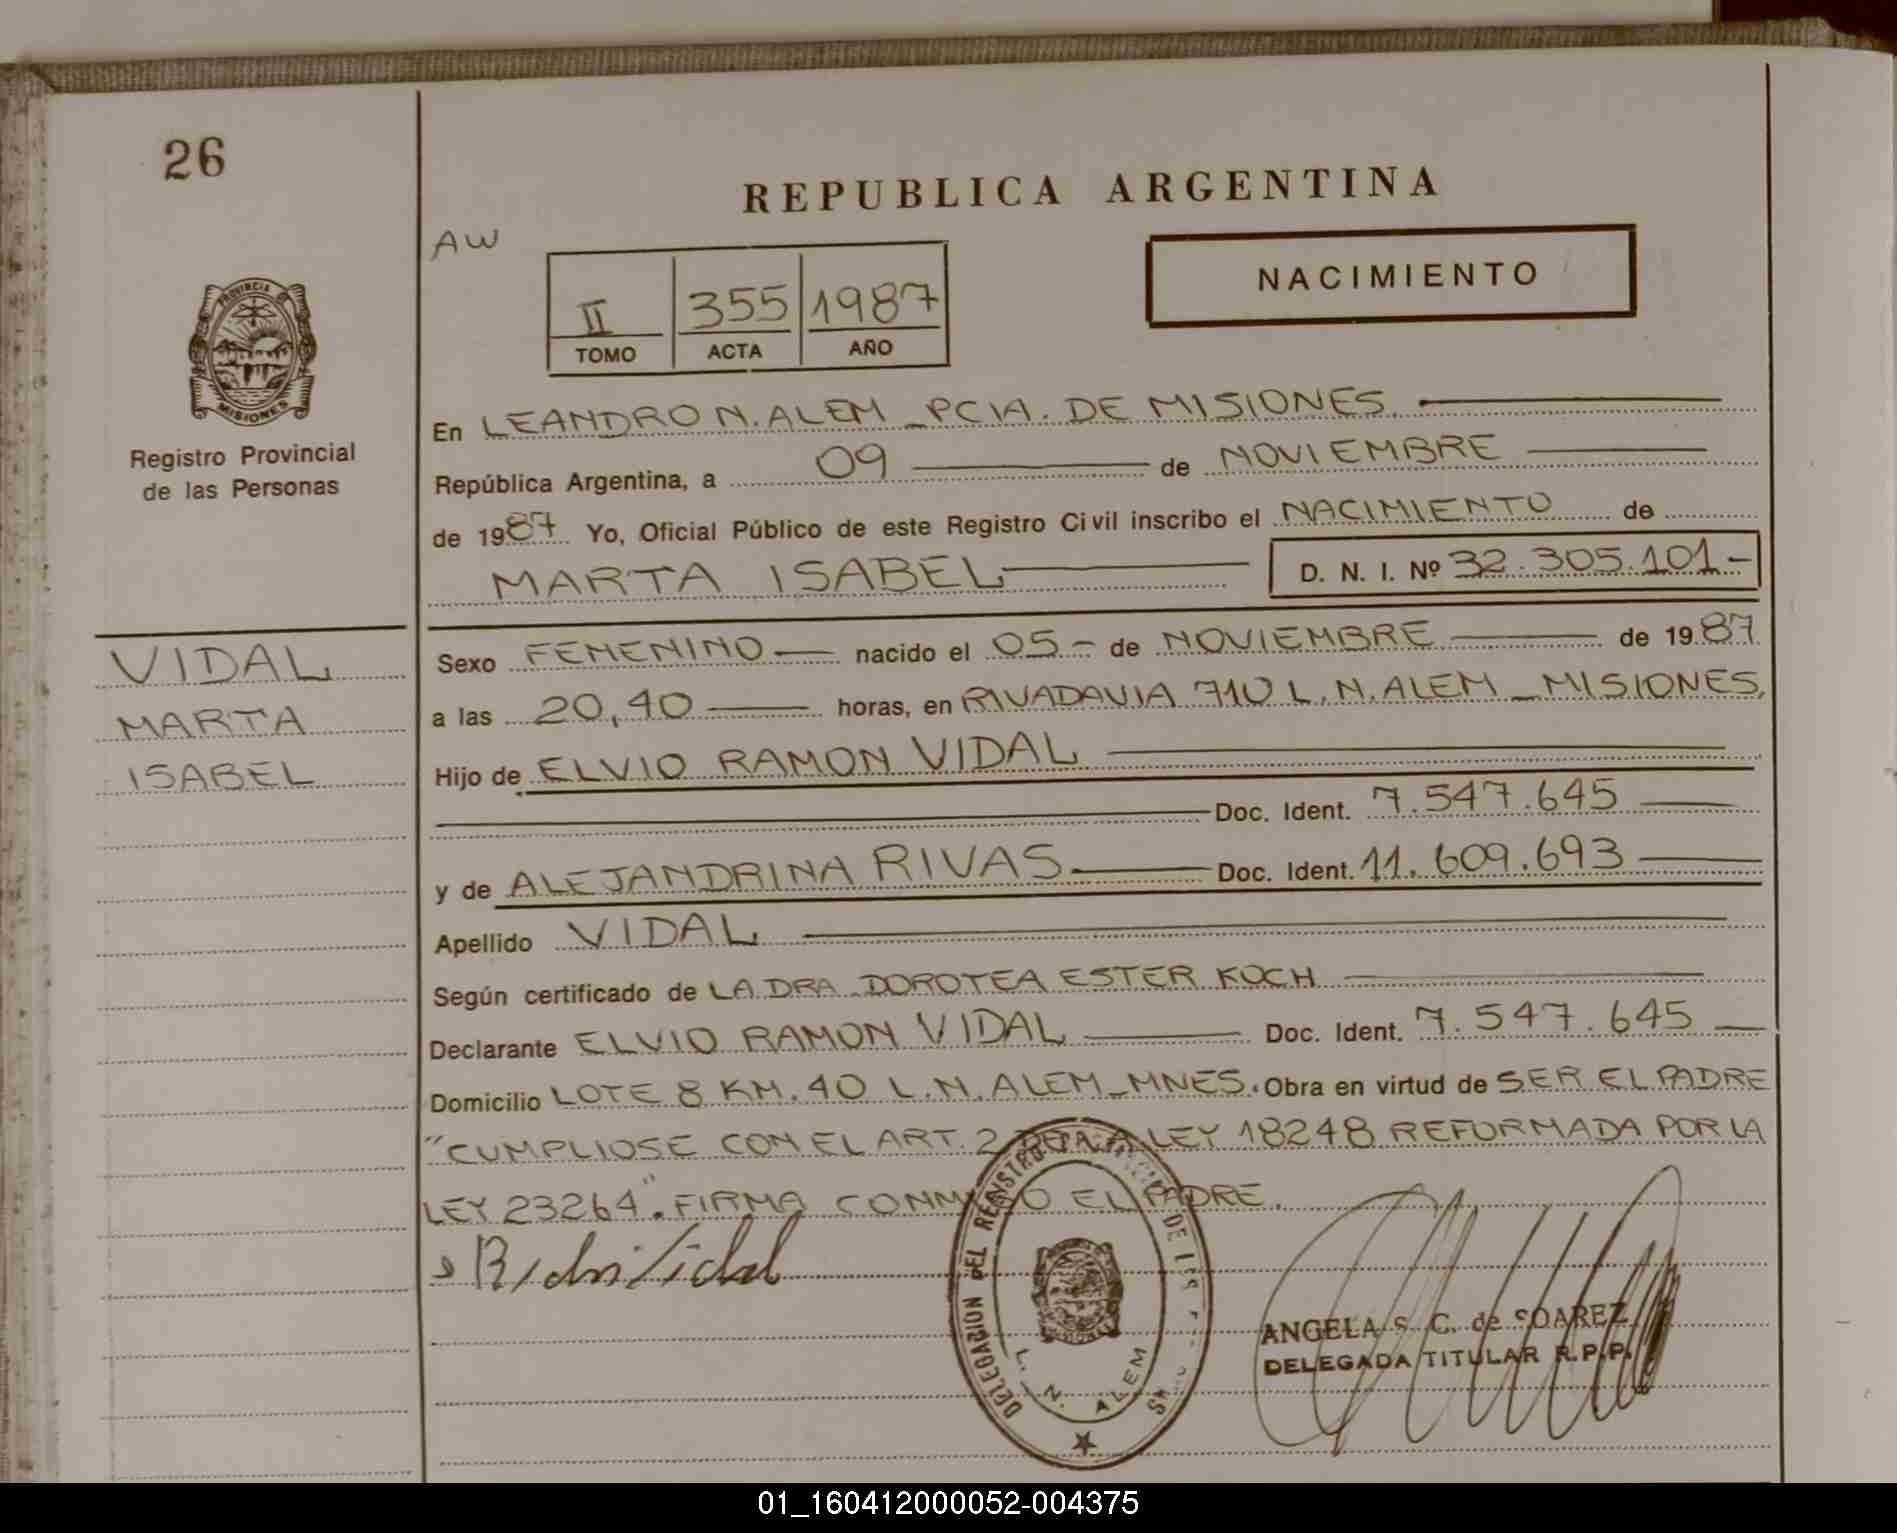 26
REPUBLICA ARGENTINA
AW
II 355 1987
TOMO ACTA AÑO
NACIMIENTO
PROVINCIA DE
MISIONES
Registro Provincial
de las Personas
En LEANDRO N. ALEM _ PCIA. DE MISIONES.
República Argentina, a 09 de NOVIEMBRE
de 1987 Yo, Oficial Público de este Registro Civil inscribo el NACIMIENTO de
MARTA ISABEL D. N. I. Nº 32.305.101-
VIDAL
MARTA
ISABEL
Sexo FEMENINO nacido el 05 - de NOVIEMBRE de 1987
a las 20,40 horas, en RIVADAVIA 710 L.N. ALEM _ MISIONES,
Hijo de ELVIO RAMON VIDAL
Doc. Ident. 7.547.645
y de ALEJANDRINA RIVAS Doc. Ident. 11.609.693
Apellido VIDAL
Según certificado de LA DRA DOROTEA ESTER KOCH
Declarante ELVIO RAMON VIDAL Doc. Ident. 7.547.645
Domicilio LOTE 8 KM. 40 L.N. ALEM _ MNES. Obra en virtud de SER EL PADRE
"CUMPLIOSE CON EL ART. 2 DE LA LEY 18248 REFORMADA POR LA
LEY 23264". FIRMA CONMIGO EL PADRE.
Vidal
DELEGACION DEL REGISTRO DE LAS
L. N. ALEM
ANGELA S. C. de SOAREZ
DELEGADA TITULAR R.P.P.
01_160412000052-004375